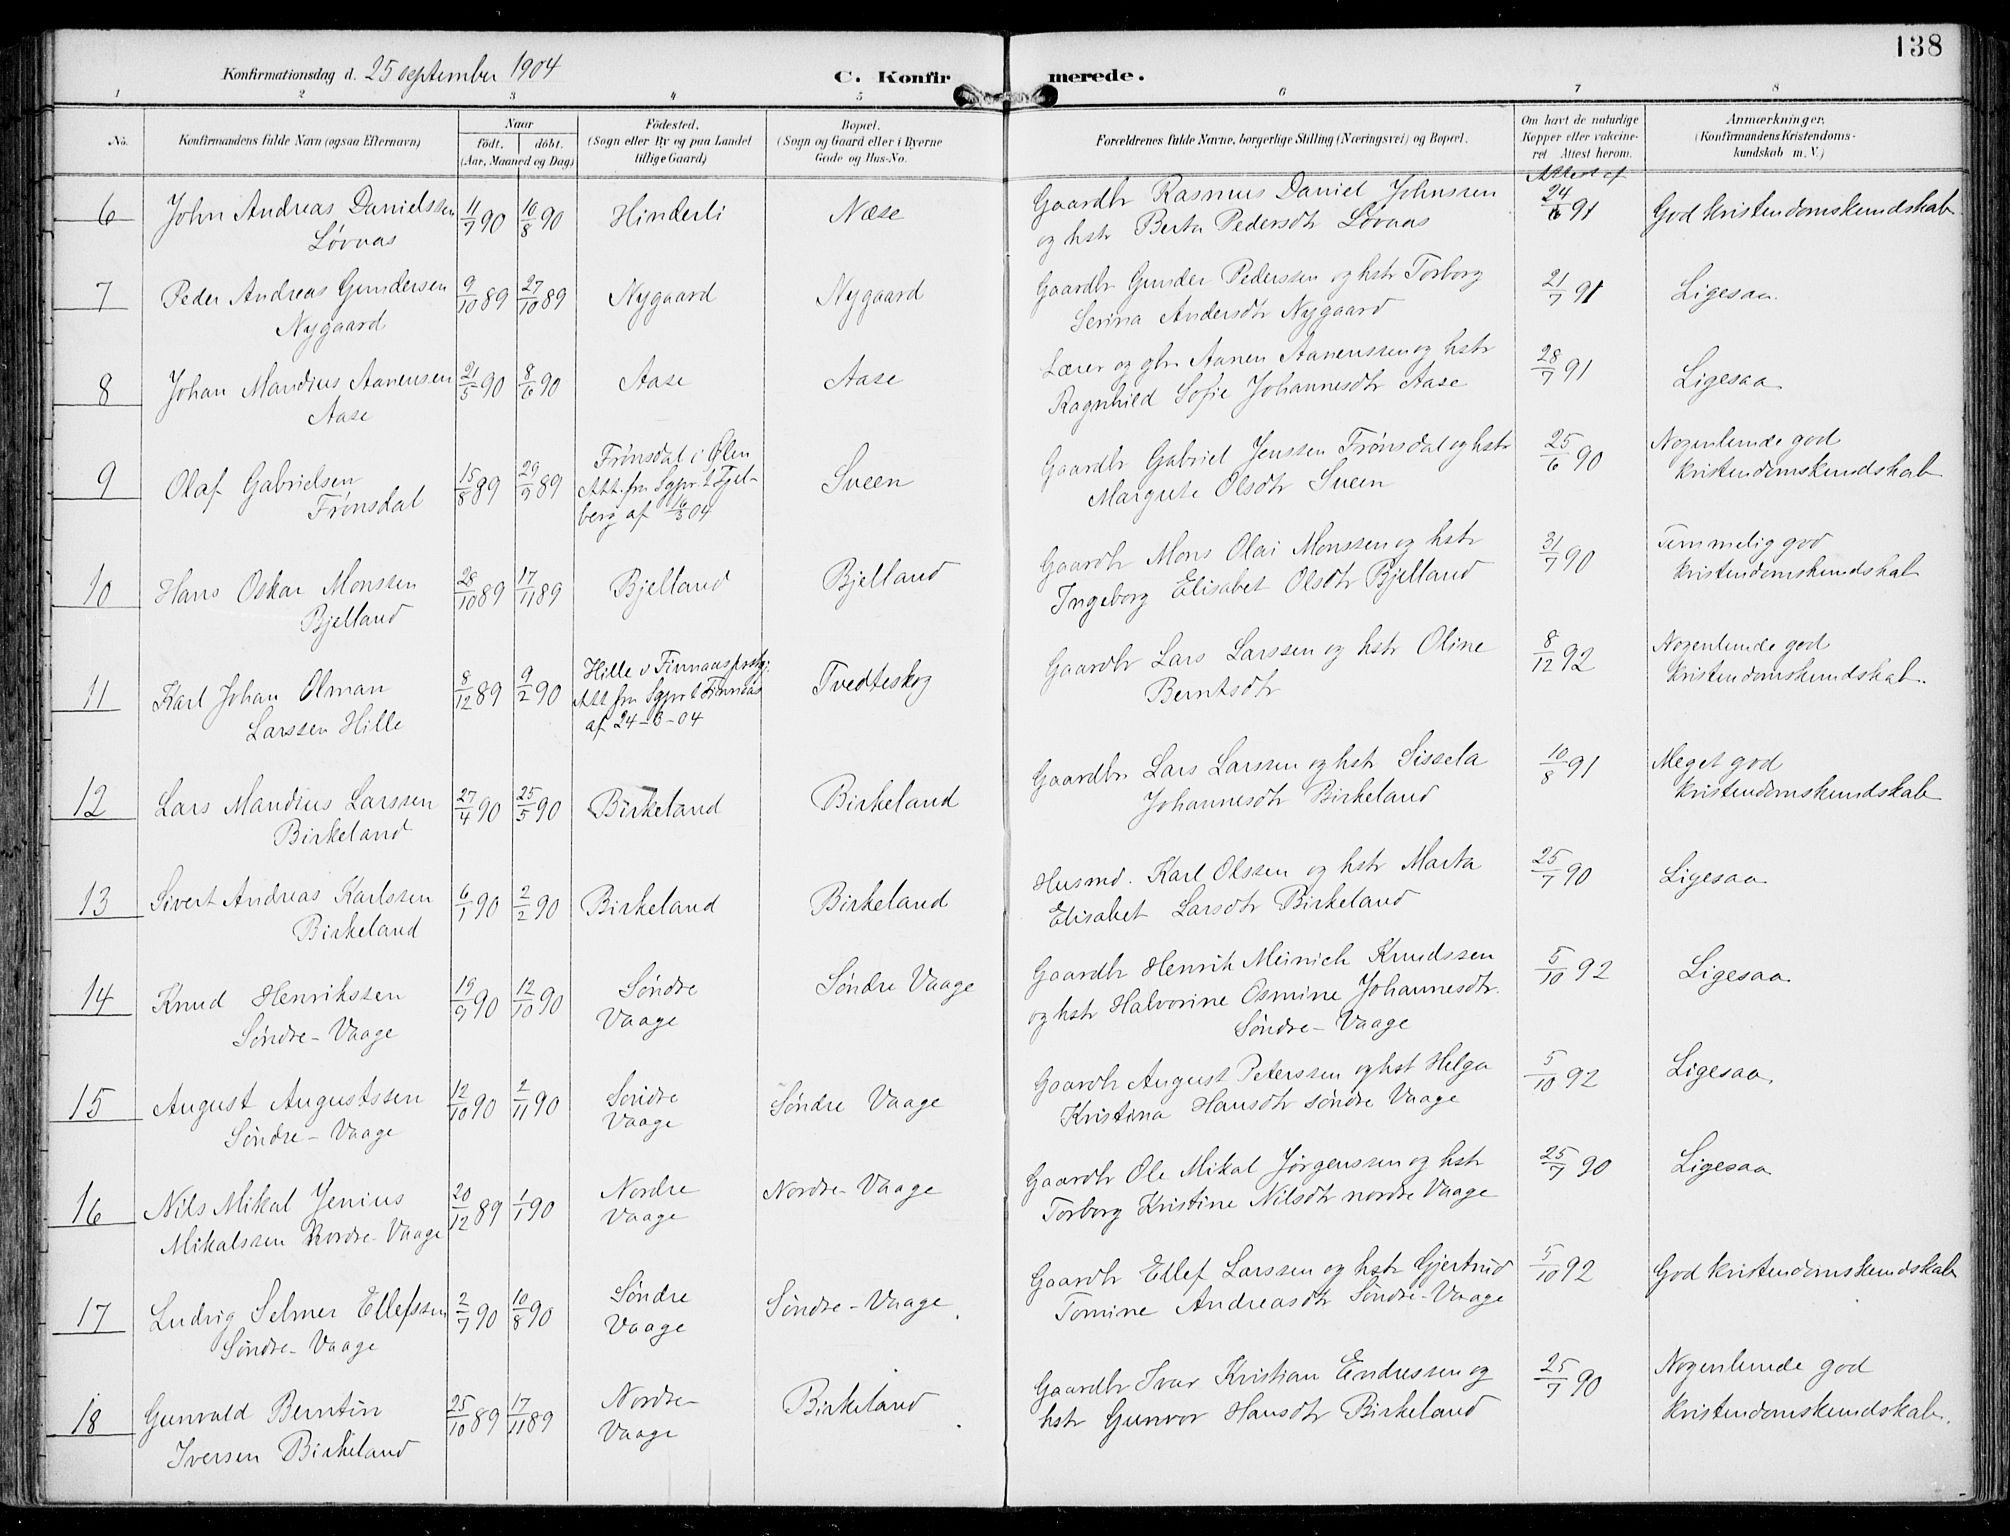 138
Konfirmationsdag d. 25 september 1904
C. Konfirmerede.
1 2 3 4 5 6 7 8
No.
Konfirmandens fulde Navn (ogsaa Efternavn)
Naar
født. døbt.
(Aar, Maaned og Dag)
Fødested.
(Sogn eller By og paa Landet
tillige Gaard)
Bopæl.
(Sogn og Gaard eller i Byerne
Gade og Hus-No.
Forældrenes fulde Navne, borgerlige Stilling (Næringsvei) og Bopæl.
Om havt de naturlige
Kopper eller vakcine-
ret. Attest herom.
Anmærkninger.
(Konfirmandens Kristendoms-
kundskab m. V.)
6 John Andreas Danielssen 11/7 90 10/8 90 Hinderli Næse Gaardbr Rasmus Daniel Johnssen Attest af 24/6 91 God kristendomskundskab
Løvaas og hstr Berta Pedersdtr Løvaas
7 Peder Andreas Gundersen 9/10 89 27/10 89 Nygaard Nygaard Gaardbr Gunder Pederssen og hstr Torborg 21/7 91 Ligesaa.
Nygaard Serina Andersdtr Nygaard
8 Johan Mandius Aanensen 21/5 90 8/6 90 Aase Aase Lærer og gbr. Aanen Aanenssen og hstr 28/7 91 Ligesaa
Aase Ragnhild Sofie Johannesdtr Aase
9 Olaf Gabrielsen 15/8 89 29/9 89 Frønsdal i Ølen Sveen Gaardbr Gabriel Jenssen Frønsdal og hstr 25/6 90 Nogenlunde god
Frønsdal Att. fra Sgpr t Fjel- Margrete Olsdtr Sveen kristendomskundskab
berg af 16/3 04
10 Hans Oskar Monssen 28/10 89 17/11 89 Bjelland Bjelland Gaardbr Mons Olai Monssen og hstr 31/7 90 Temmelig god
Bjelland Ingeborg Elisabet Olsdtr Bjelland kristendomskundskab
11 Karl Johan Olman 8/12 89 9/2 90 Hille i Finnaas prstgj. Tvedteskog Gaardbr Lars Larssen og hstr Oline 8/12 92 Nogenlunde god
Larssen Hille Att fra Sgpr t Finnaas Berntsdtr kristendomskundskab.
af 24-3-04
12 Lars Mandius Larssen 27/4 90 25/5 90 Birkeland Birkeland Gaardbr. Lars Larssen og hstr Sissela 10/8 91 Meget god
Birkeland Johannesdtr Birkeland kristendomskundskab
13 Sivert Andreas Karlssen 6/1 90 2/2 90 Birkeland Birkeland Husmd. Karl Olssen og hstr Marta 25/7 90 Ligesaa
Birkeland Elisabet Larsdtr Birkeland
14 Knud Henrikssen 19/9 90 12/10 90 Søndre Søndre Vaage Gaardbr Henrik Meinich Knudssen 5/10 92 Ligesaa
Søndre-Vaage Vaage og hstr Halvorine Osmine Johannesdtr.
Søndre-Vaage
15 August Augustssen 12/10 90 2/11 90 Søndre Søndre Vaage Gaardbr August Peterssen og hst Helga 5/10 92 Ligesaa
Søndre-Vaage Vaage Kristina Hansdtr søndre Vaage
16 Nils Mikal Jenius 20/12 89 1/1 90 Nordre Nordre-Vaage Gaardbr Ole Mikal Jørgenssen og hstr 25/7 90 Ligesaa
Mikalssen Nordre-Vaage Vaage Torborg Kristine Nilsdtr nordre Vaage
17 Ludvig Selmer Ellefssen 2/7 90 10/8 90 Søndre Søndre-Vaage Gaardbr Ellef Larssen og hstr Gjertrud 5/10 92 God kristendomskundskab
Søndre-Vaage Vaage Tomine Andreasdtr Søndre-Vaage
18 Gunvald Berntin 25/10 89 17/11 89 Nordre Birkeland Gaardbr Ivar Kristian Endressen og 25/7 90 Nogenlunde god
Iversen Birkeland Vaage hstr Gunvor Hansdtr Birkeland kristendomskundskab.